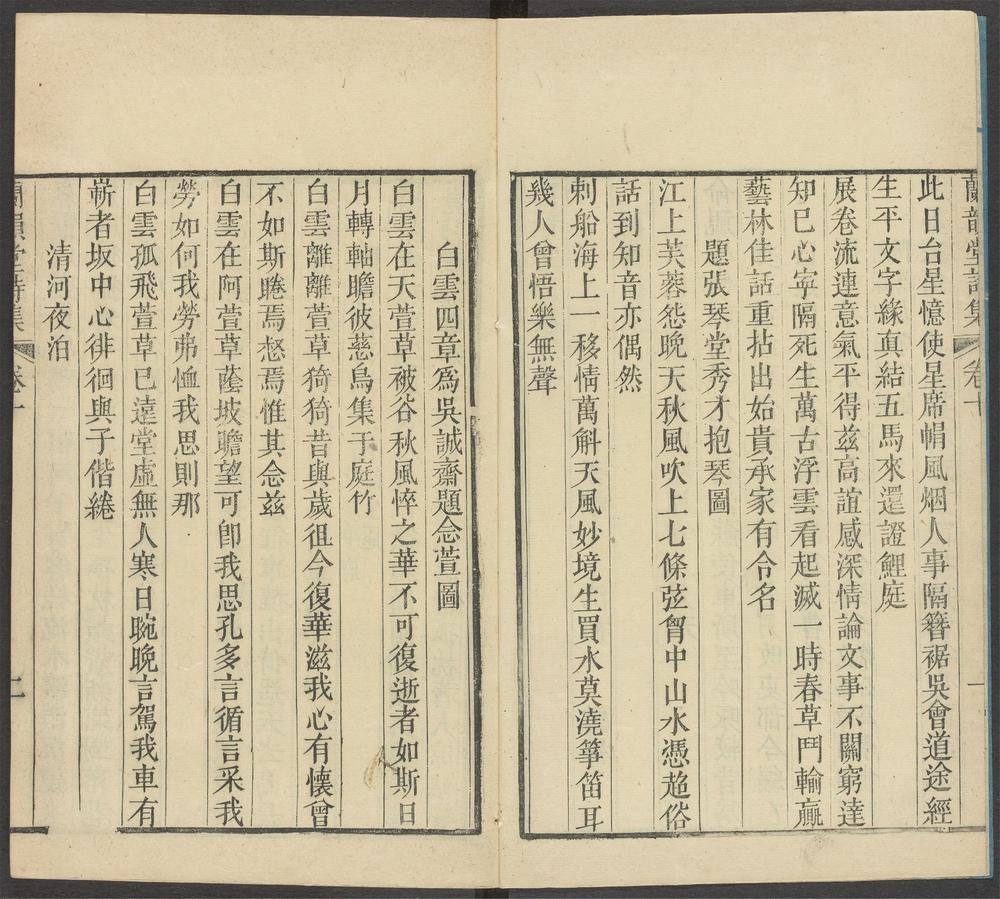 蘭韻堂詩集 卷十 一
此日台星憶使星席帽風烟人事隔簪裾吳會道途經
生平文字緣眞結五馬來還證鯉庭
展卷流連意氣平得茲高誼感深情論文事不關窮達
知己心寧隔死生萬古浮雲看起滅一時春草鬥輸贏
藝林佳話重拈出始貴承家有令名
題張琴堂秀才抱琴圖
江上芙蓉怨晚天秋風吹上七條弦胷中山水憑超俗
話到知音亦偶然
刺船海上一移情萬斛天風妙境生買水莫澆箏笛耳
幾人曾悟樂無聲
白雲四章爲吳誠齋題念萱圖
白雲在天萱草被谷秋風悴之華不可復逝者如斯日
月轉軸瞻彼慈烏集于庭竹
白雲離離萱草猗猗昔與歲徂今復華滋我心有懷曾
不如斯睠焉惄焉惟其念茲
白雲在阿萱草蔭坡瞻望可卽我思孔多言循言采我
勞如何我勞弗恤我思則那
白雲孤飛萱草已遠堂虛無人寒日晼晚言駕我車有
嶄者坂中心徘徊與子偕綣
清河夜泊
蘭韻堂詩集 卷十